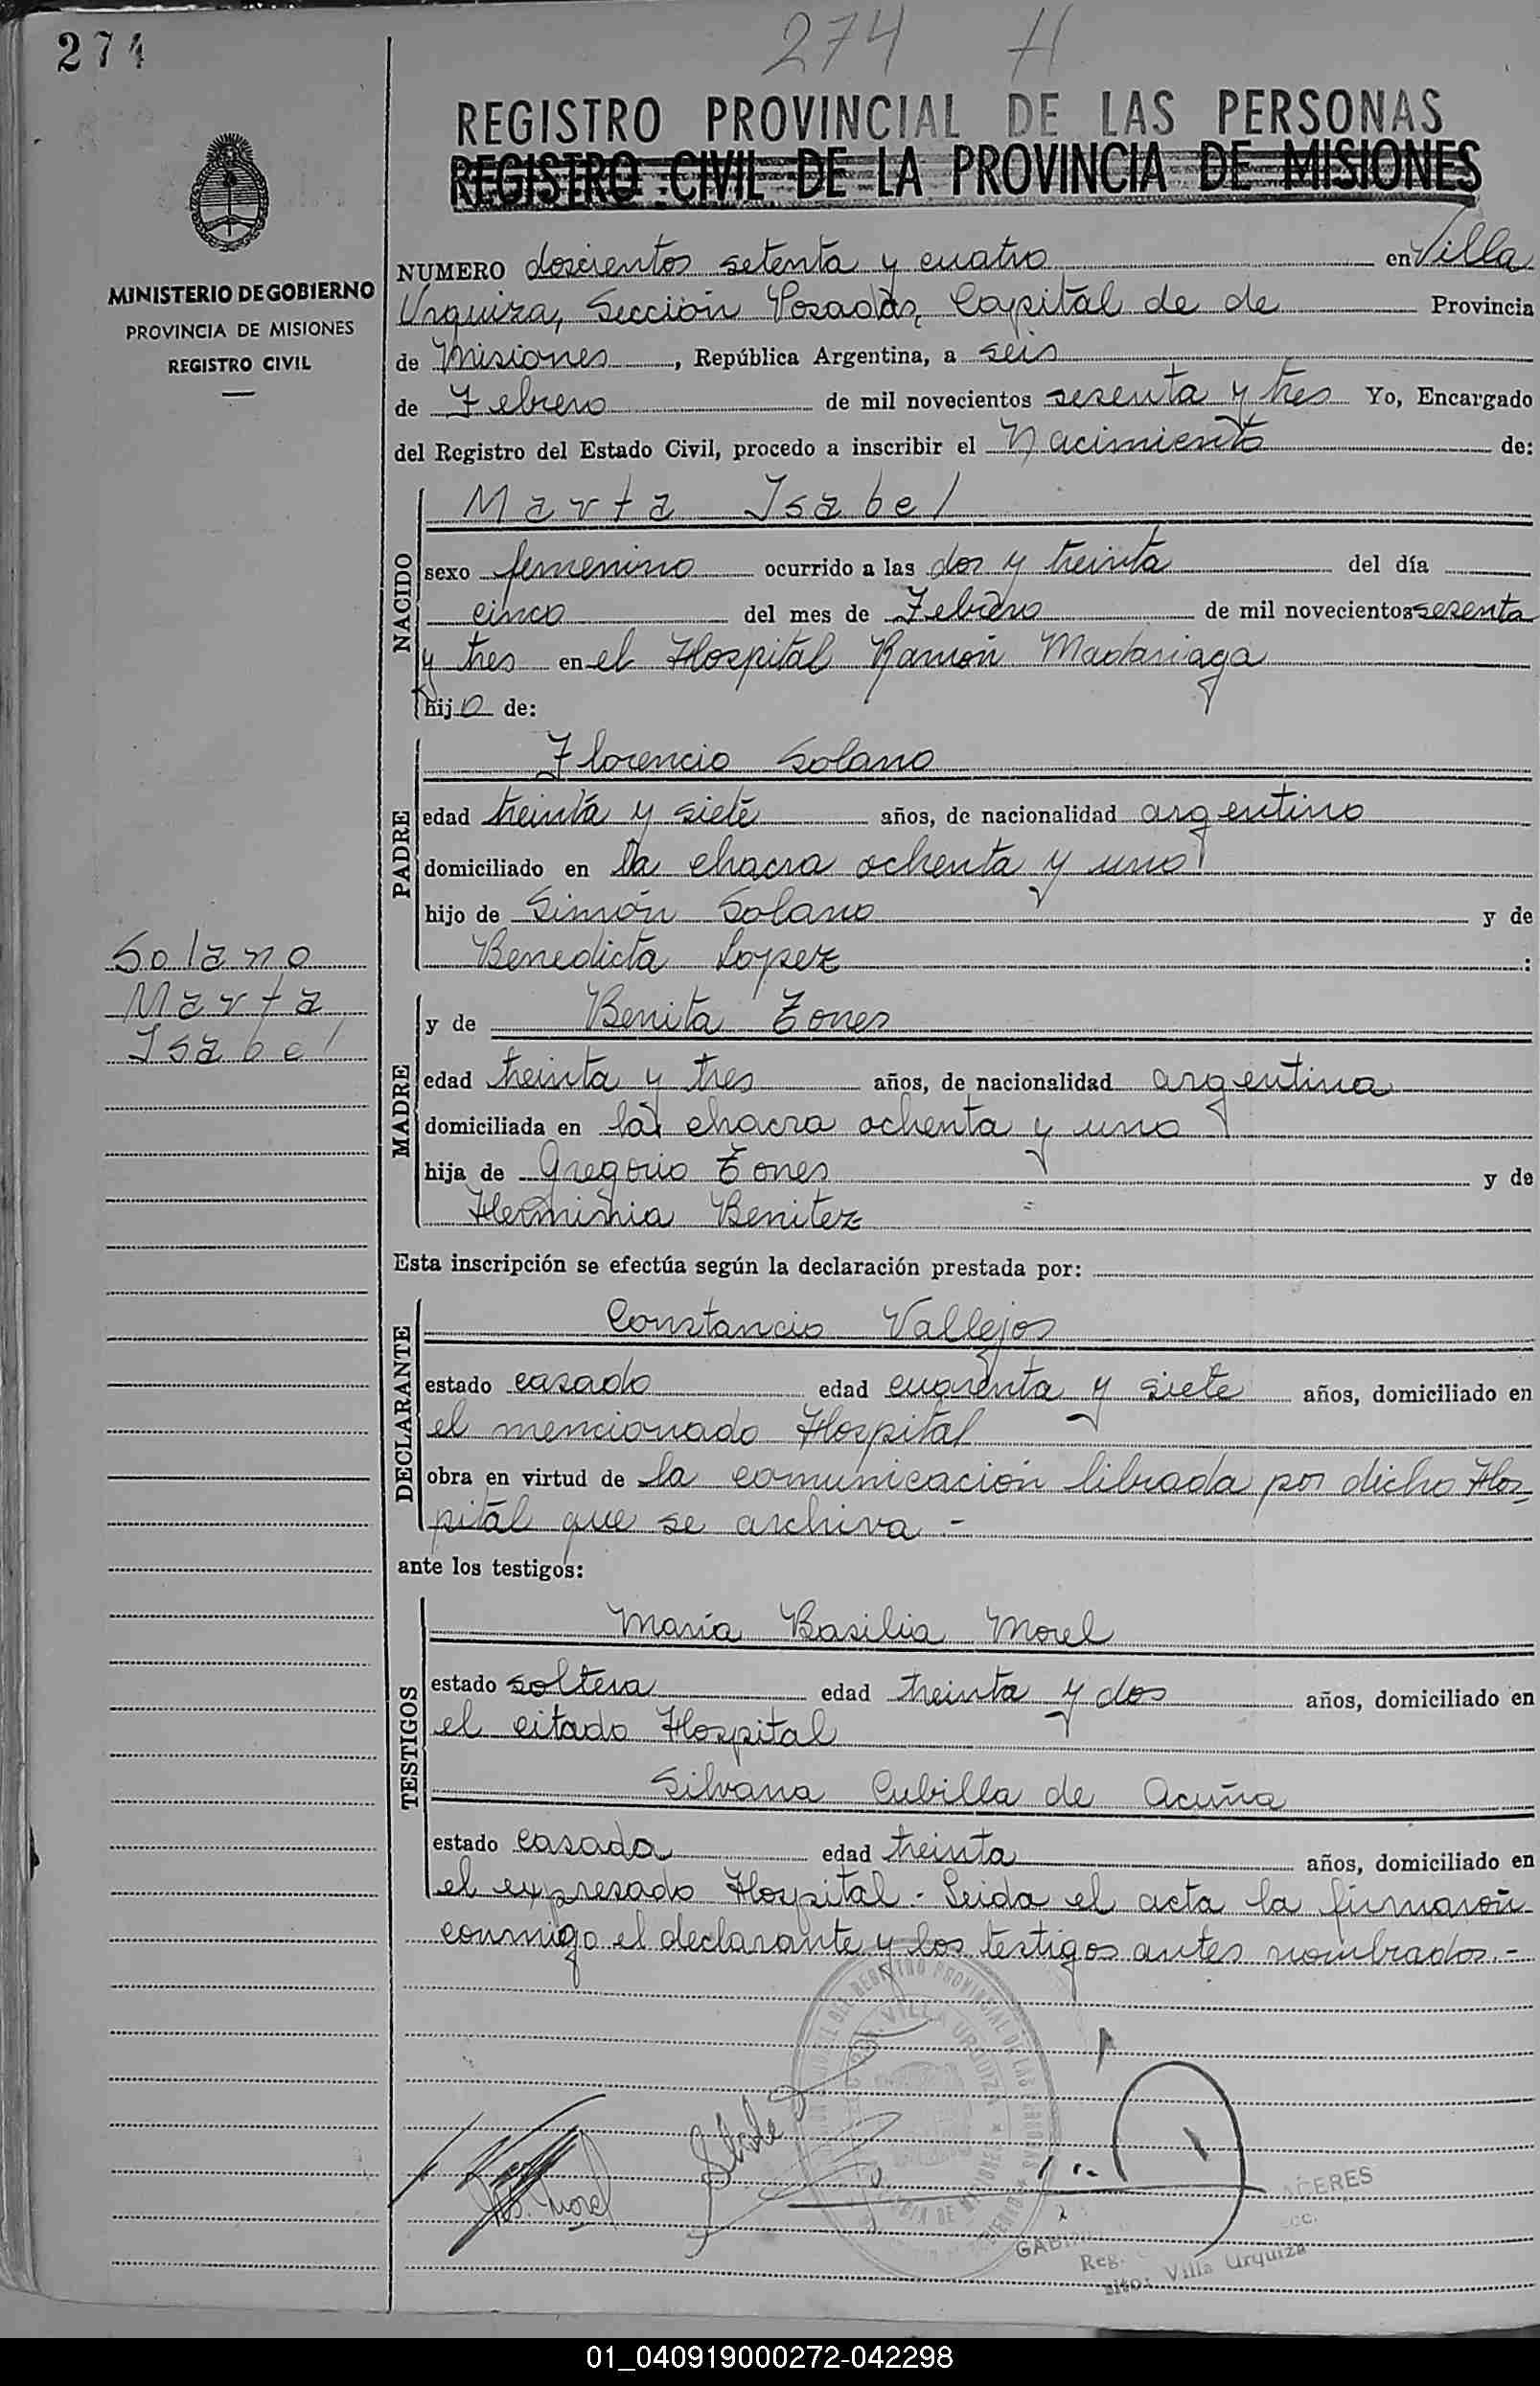 274
274 H
REGISTRO PROVINCIAL DE LAS PERSONAS
REGISTRO CIVIL DE LA PROVINCIA DE MISIONES
MINISTERIO DE GOBIERNO
PROVINCIA DE MISIONES
REGISTRO CIVIL
NUMERO doscientos setenta y cuatro en Villa
Urquiza, Sección Posadas, Capital de de Provincia
de Misiones, República Argentina, a seis
de Febrero de mil novecientos sesenta y tres Yo, Encargado
del Registro del Estado Civil, procedo a inscribir el Nacimiento de:
NACIDO
Marta Isabel
sexo femenino ocurrido a las dos y treinta del día
cinco del mes de Febrero de mil novecientos sesenta
y tres en el Hospital Ramón Madariaga
hij a de:
PADRE
Florencio Solano
edad treinta y siete años, de nacionalidad argentino
domiciliado en la chacra ochenta y uno
hijo de Simón Solano y de
Benedicta Lopez :
Solano
Marta
Isabel
MADRE
y de Benita Tones
edad treinta y tres años, de nacionalidad argentina
domiciliada en la chacra ochenta y uno
hija de Gregorio Tones y de
Herminia Benitez
Esta inscripción se efectúa según la declaración prestada por:
DECLARANTE
Constancio Vallejos
estado casado edad cuarenta y siete años, domiciliado en
el mencionado Hospital
obra en virtud de la comunicación librada por dicho Hos-
pital que se archiva.-
ante los testigos:
TESTIGOS
María Basilia Morel
estado soltera edad treinta y dos años, domiciliado en
el citado Hospital
Silvana Cubilla de Acuña
estado casada edad treinta años, domiciliado en
el expresado Hospital.- Leida el acta la firmaron
conmigo el declarante y los testigos antes nombrados.-
Morel
ACERES
Reg.
Villa Urquiza
01_040919000272-042298